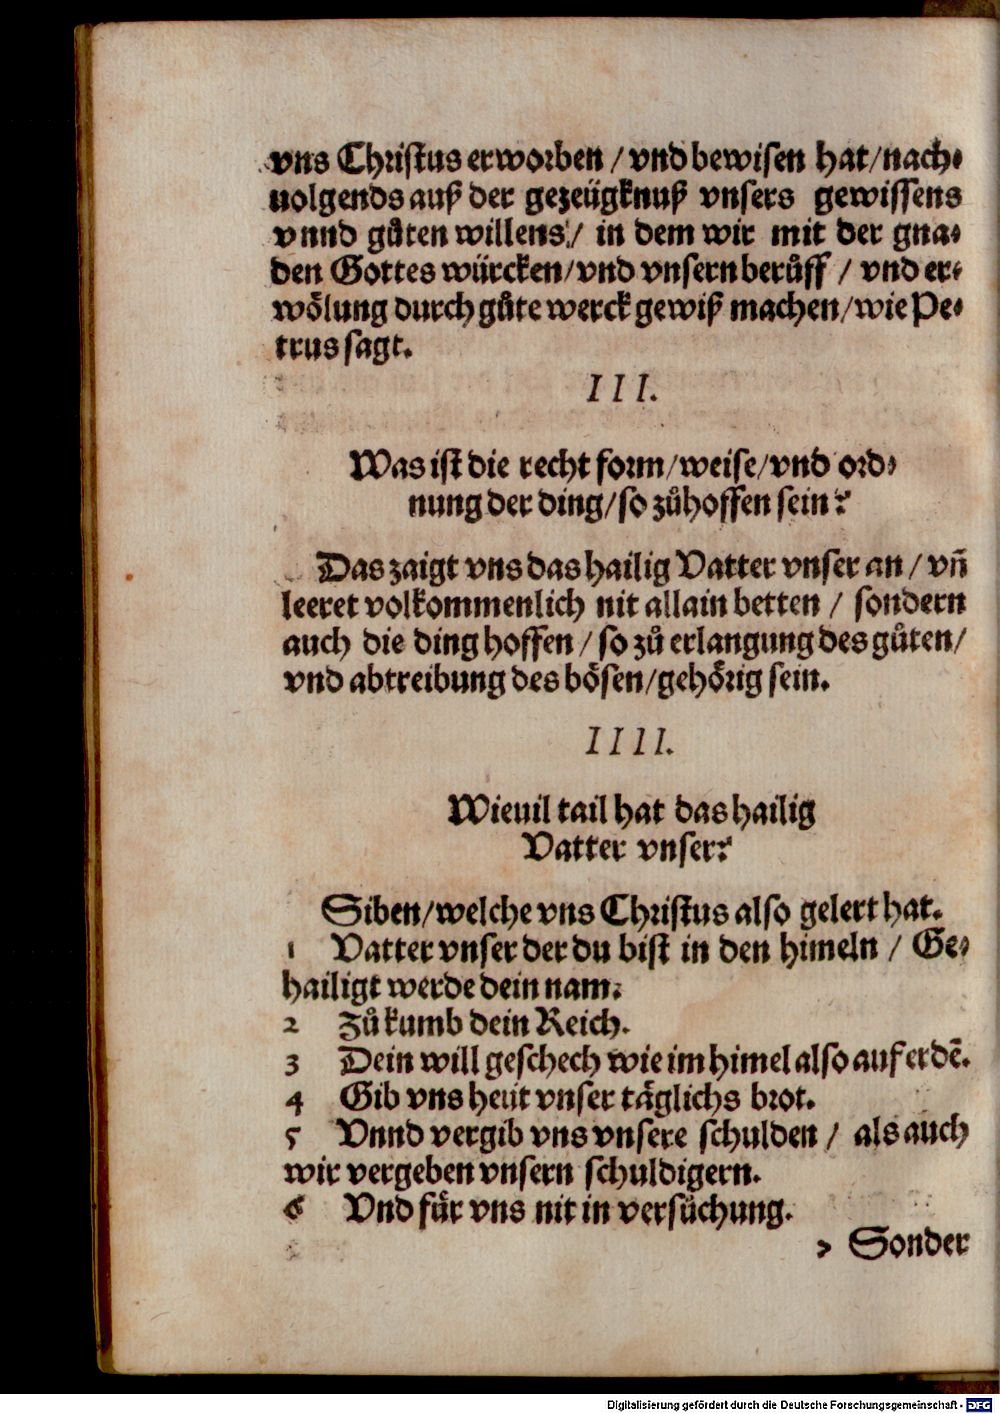 vns Christus erworben / vnd bewisen hat/nach⸗
uolgends auß der gezeügknuß vnsers gewissens
vnnd gůten willens / in dem wir mit der gna⸗
den Gottes würcken/vnd vnsern berůff / vnd er⸗
wölung durch gůte werck gewiß machen/wie Pe⸗
trus sagt.
III.
Was ist die recht form/weise/vnd ord⸗
nung der ding/so zůhoffen sein?
Das zaigt vns das hailig Vatter vnser an / vn̄
leeret volkommenlich nit allain betten / sondern
auch die ding hoffen / so zů erlangung des gůten/
vnd abtreibung des bösen/gehörig sein.
IIII.
Wieuil tail hat das hailig
Vatter vnser?
Siben/welche vns Christus also gelert hat.
1 Vatter vnser der du bist in den himeln / Ge⸗
hailigt werde dein nam.
2 Zů kumb dein Reich.
3 Dein will geschech wie im himel also auf erdē.
4 Gib vns heüt vnser täglichs brot.
5 Vnnd vergib vns vnsere schulden / als auch
wir vergeben vnsern schuldigern.
6 Vnd für vns nit in versüchung.
7 Sonder
Digitalisierung gefördert durch die Deutsche Forschungsgemeinschaft - DFG